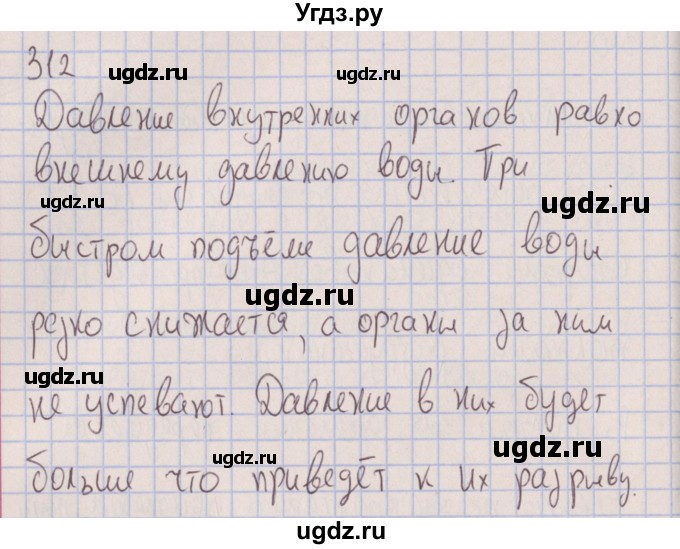 Угдз.ру
312
ugdz.ru
ugdz.ru
Давление внутренних органов равно
внешнему давлению воды. При
ugdz.ru
ugdz.ru
быстром подъёме давление воды
ugdz.ru
резко снижается, а органы за ним
ugdz.ru
не успевают. Давление в них будет
ugdz.ru
ugdz.ru
больше что приведёт к их разрыву.
ugdz.ru